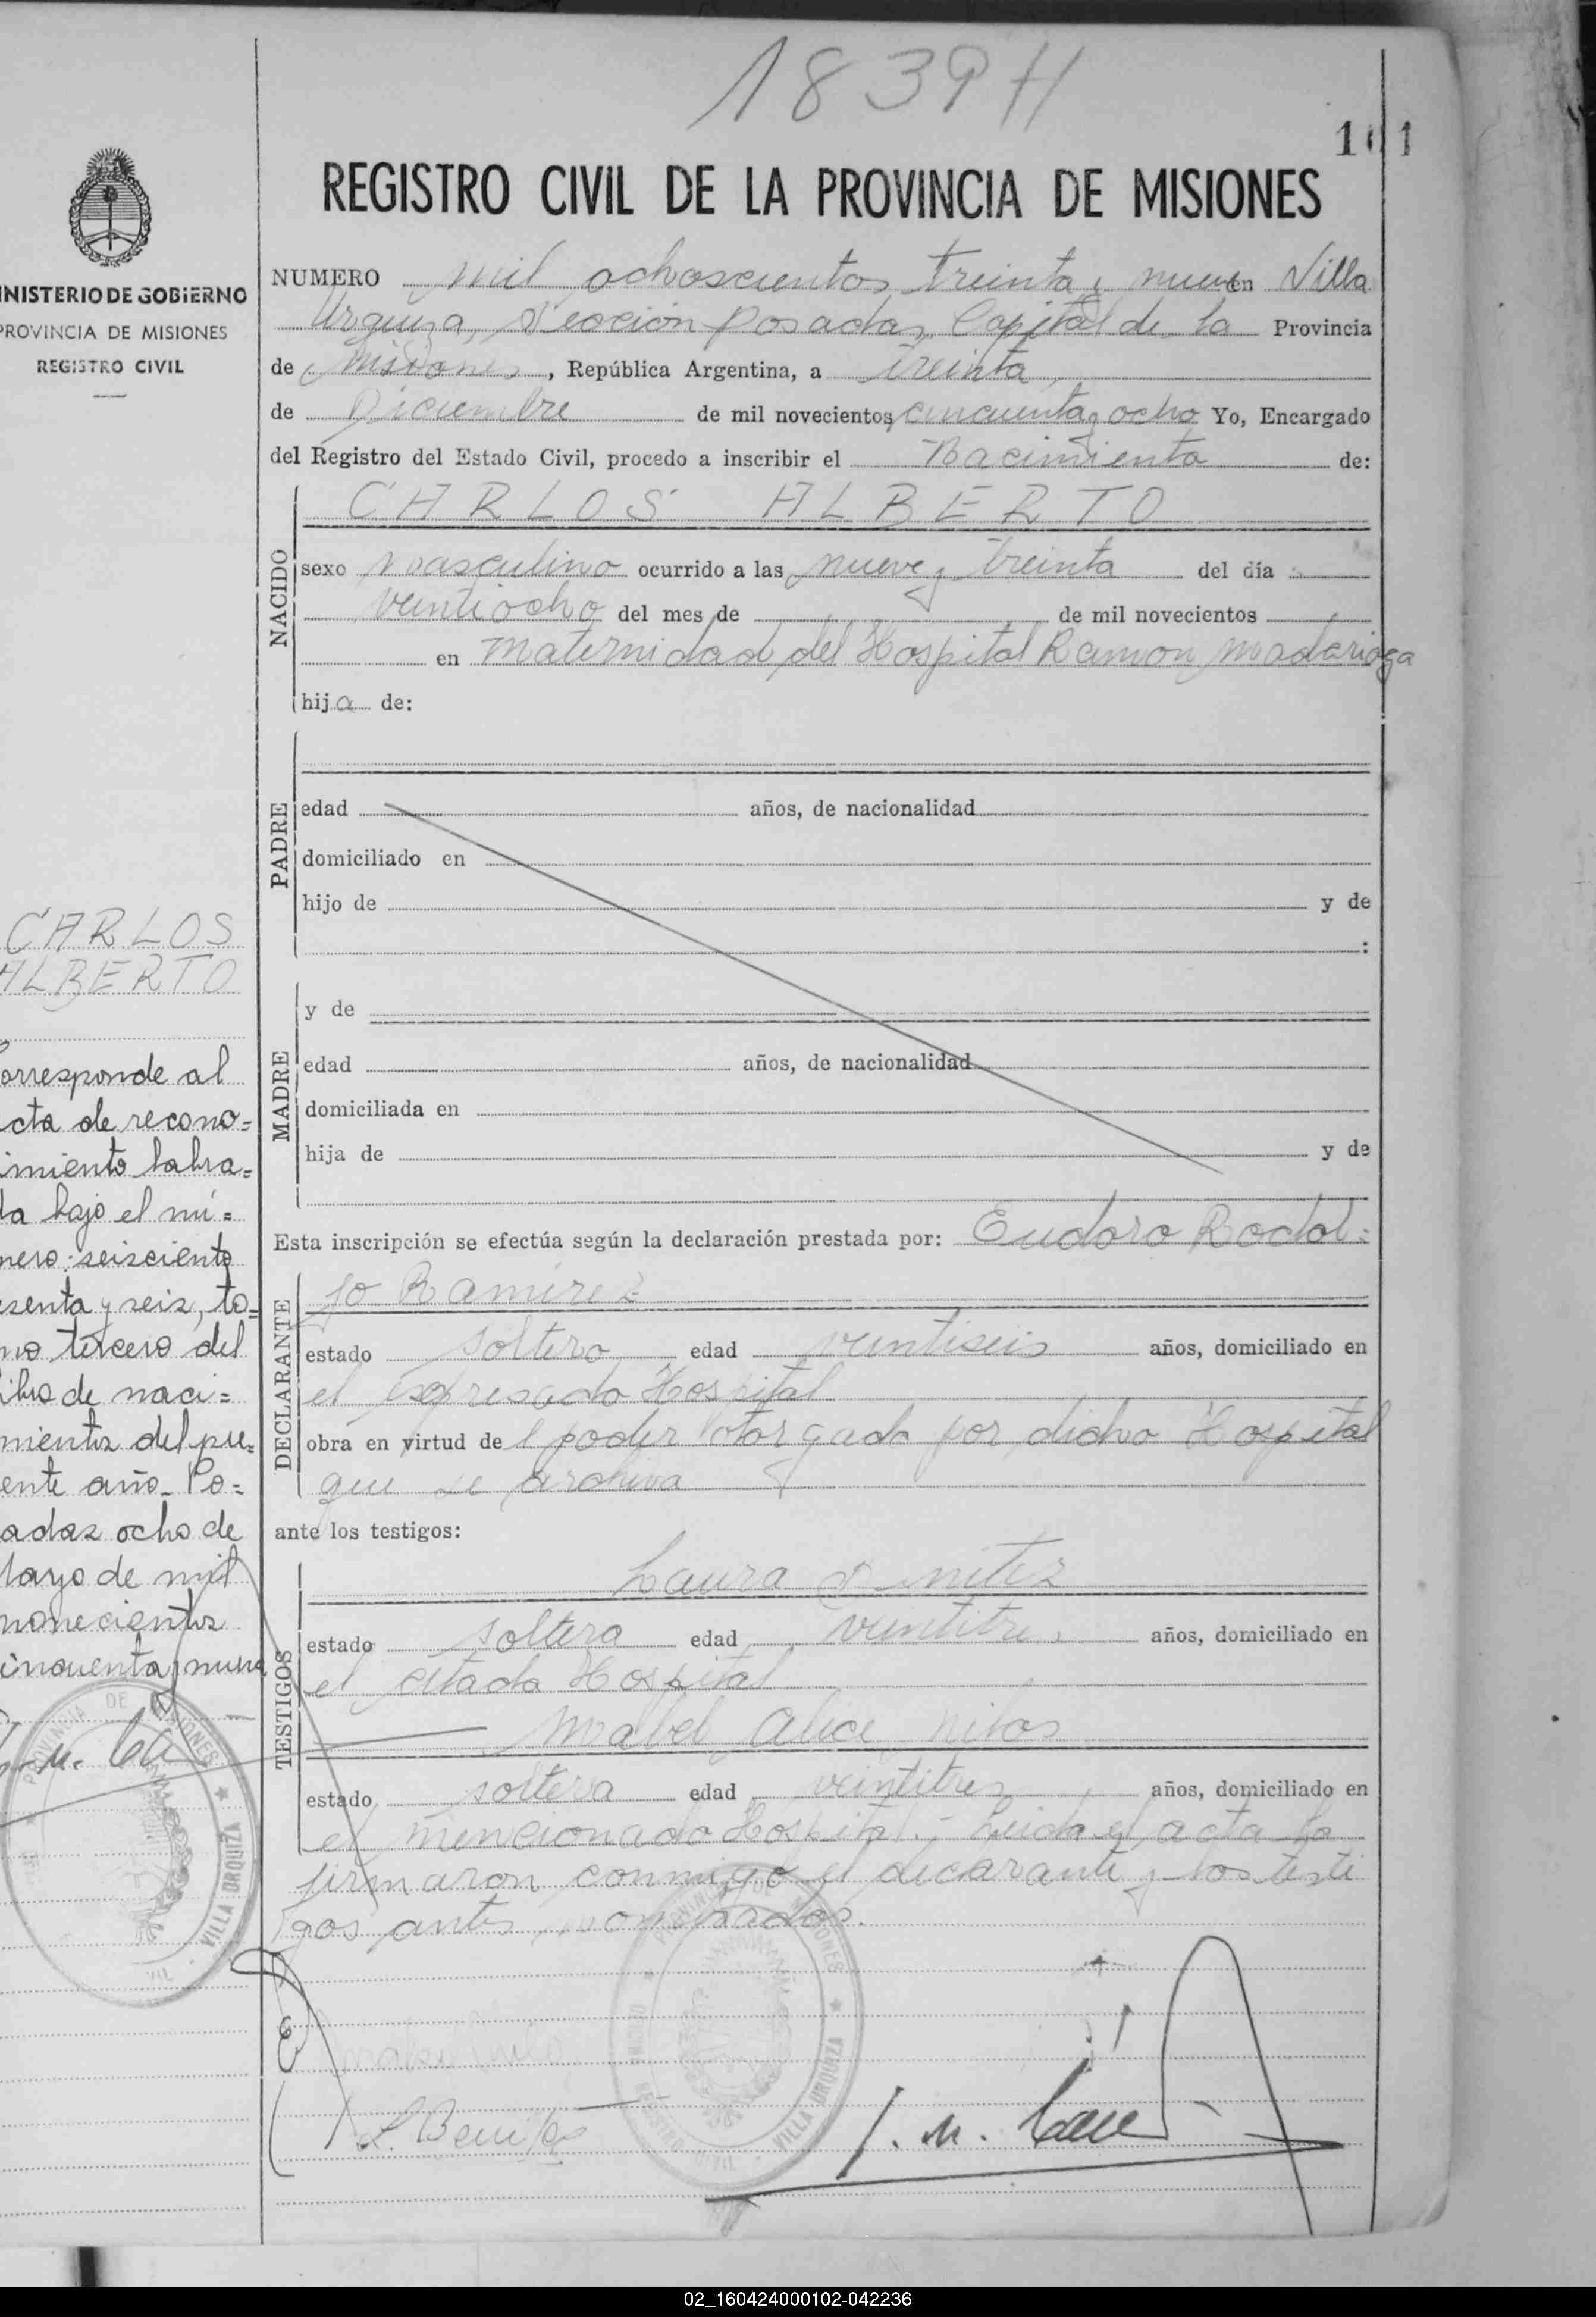 1839 H
101
REGISTRO CIVIL DE LA PROVINCIA DE MISIONES
INISTERIO DE GOBIERNO
PROVINCIA DE MISIONES
REGISTRO CIVIL
NUMERO mil ochoscientos treinta y nueve en Villa
Urquiza, Sección Posadas, Capital de la Provincia
de Misiones, República Argentina, a treinta
de Diciembre de mil novecientos cincuenta y ocho Yo, Encargado
del Registro del Estado Civil, procedo a inscribir el Nacimiento de:
NACIDO
CARLOS ALBERTO
sexo masculino ocurrido a las nueve y treinta del día
veintiocho del mes de de mil novecientos
en Maternidad del Hospital Ramon Madariaga
hija de:
PADRE
edad años, de nacionalidad
domiciliado en
hijo de y de
:
MADRE
y de
edad años, de nacionalidad
domiciliada en
hija de y de
Esta inscripción se efectúa según la declaración prestada por: Eudoro Rodol=
DECLARANTE
fo Ramírez
estado soltero edad veintiseis años, domiciliado en
el expresado Hospital
obra en virtud de l poder otorgado por dicho Hospital
que se archiva
ante los testigos:
TESTIGOS
Laura Benitez
estado soltera edad veintitres años, domiciliado en
el citado Hospital
Mabel Alice
estado soltera edad veintitres años, domiciliado en
el mencionado Hospital.- Leida el acta la
firmaron conmigo el declarante y los testi
gos antes nombrados.
L. Benitez
CARLOS
ALBERTO
orresponde al
cta de recono=
imiento labra=
da bajo el nú=
mero: seisciento
esenta y seis, to=
mo tercero del
libro de naci=
mientos del pre=
ente año_ Po=
adas ocho de
Mayo de mil
novecientos
incuenta y nueve
PROVINCIA DE MISIONES
VILLA URQUIZA
PROVINCIA DE MISIONES
REGISTRO CIVIL
VILLA URQUIZA
02_160424000102-042236